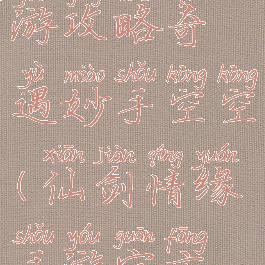 游攻略奇
yù miào shǒu kōng kōng
遇妙手空空
xiān jiàn qíng yuán
(仙剑情缘
shǒu yóu guān fāng